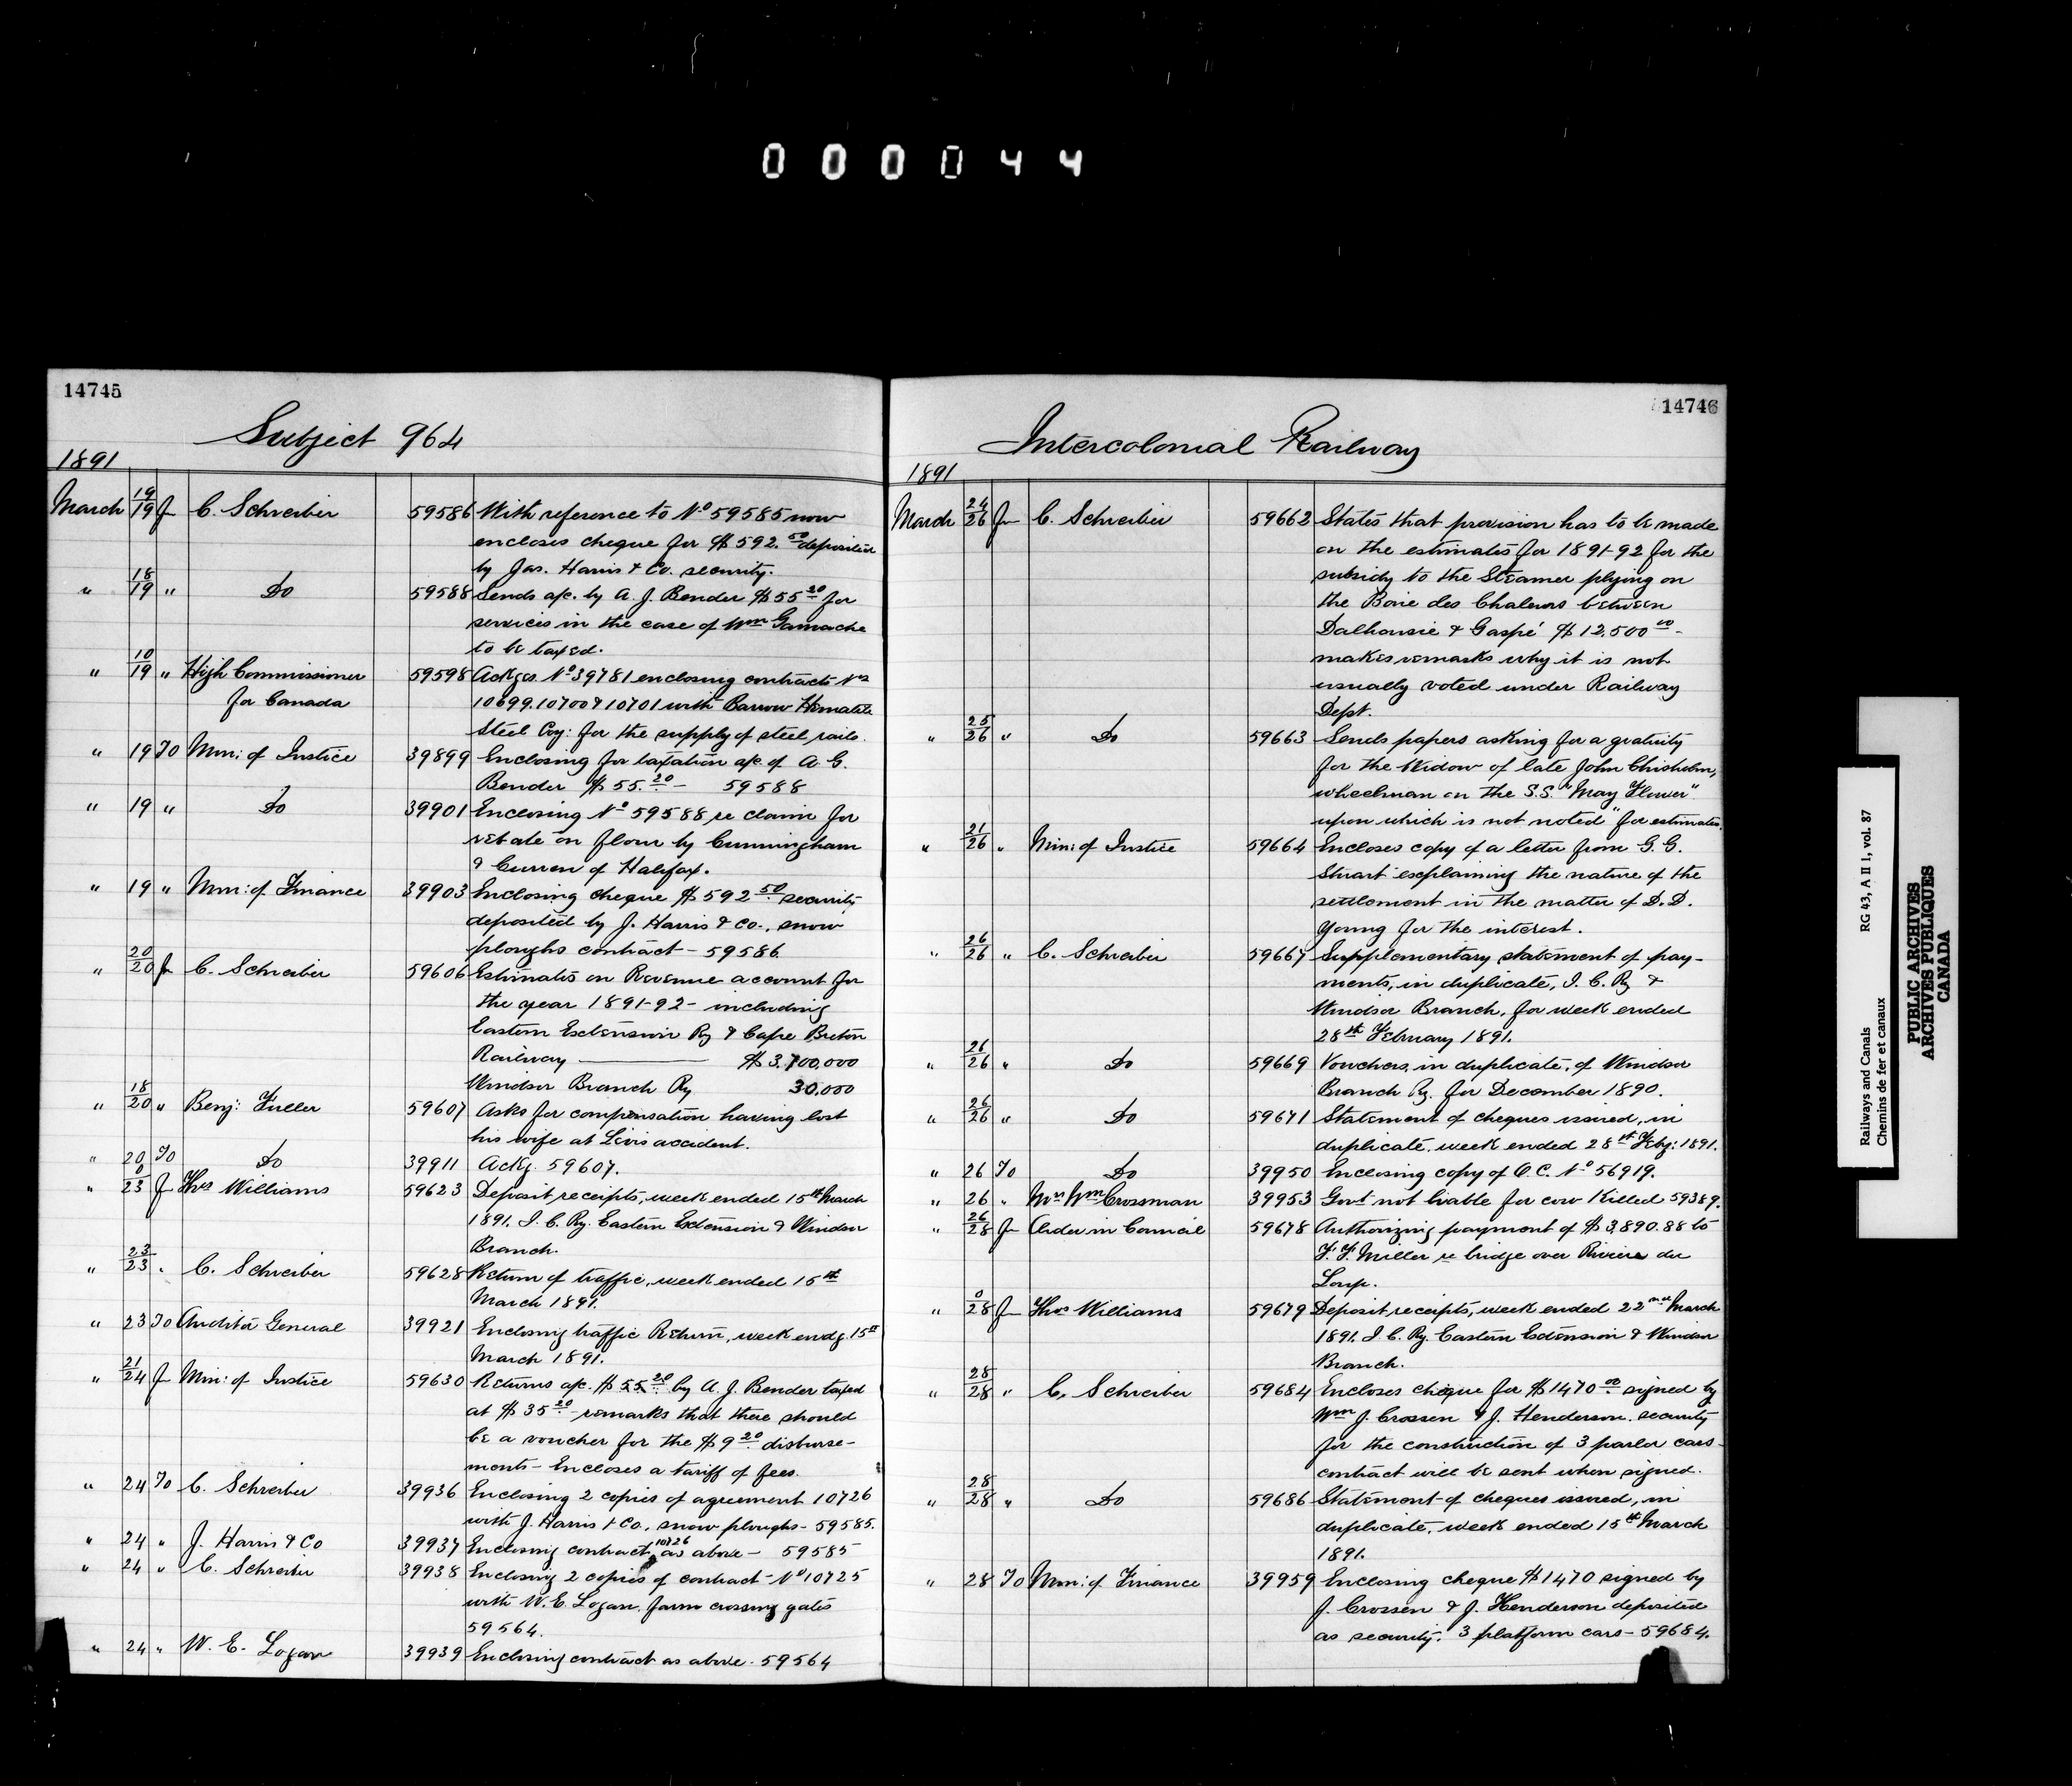 000044
14745
Subject 964
1891
March 19/19 Fm C. Schreiber 59586 With reference to No 59585 now
encloses cheque for $592.50 deposited
by Jas. Harris & Co. security.
" 18/19 " Do 59588 Sends a/c. by A. J. Bender $55.20 for
services in the case of Wm Gamache
to be taxed.
" 10/19 " High Commissioner 59598 Ackges No 39781 enclosing contracts Nos
for Canada 10699.10700 & 10701 with Barrow Hematite
Steel Coy: for the supply of steel rails.
" 19 To Min: of Justice 39899 Enclosing for taxation a/c of A. G.
Bender $55.20 - 59588
" 19 " Do 39901 Enclosing No 59588 re claim for
rebate on flour by Cunningham
& Curren of Halifax.
" 19 " Min: of Finance 39903 Enclosing cheque $592.50 security
deposited by J. Harris & Co., snow
ploughs contract - 59586
" 20/20 Fm C. Schreiber 59606 Estimates on Revenue account for
the year 1891-92 - including
Eastern Extension Ry & Cape Breton
Railway — $3,700,000
Windsor Branch Ry 30,000
" 18/20 " Benj: Fuller 59607 Asks for compensation having lost
his wife at Lévis accident.
" 20 To Do 39911 Ackg. 59607.
" 0/23 Fm Thos Williams 59623 Deposit receipts, week ended 15th March
1891. I. C. Ry. Eastern Extension & Windsor
Branch.
" 23/23 " C. Schreiber 59628 Return of traffic, week ended 15th
March 1891.
" 23 To Auditor General 39921 Enclosing traffic Return, week endg. 15th
March 1891.
" 21/24 Fm Min: of Justice 59630 Returns a/c. $55.20 by A. J. Bender taxed
at $35.20 - remarks that there should
be a voucher for the $9.20 disburse-
ments - Encloses a tariff of fees.
" 24 To C. Schreiber 39936 Enclosing 2 copies of agreement 10726
with J. Harris & Co., snow ploughs - 59585.
" 24 " J. Harris & Co 39937 Enclosing contract 10726 as above - 59585
" 24 " C. Schreiber 39938 Enclosing 2 copies of contract - No 10725
with W. E. Logan. farm crossing gates
59564.
" 24 " W. E. Logan 39939 Enclosing contract as above - 59564
14746
Intercolonial Railway
1891
March 24/26 Fm C. Schreiber 59662 States that provision has to be made
on the estimates for 1891-92 for the
subsidy to the Steamer plying on
the Baie des Chaleurs between
Dalhousie & Gaspé $12,500.00 -
makes remarks why it is not
usually voted under Railway
Dept.
" 25/26 " Do 59663 Sends papers asking for a gratuity
for the Widow of late John Chisholm,
wheelman on the S.S. "May Flower"
upon which is not noted "for estimates.
" 21/26 " Min: of Justice 59664 Encloses copy of a letter from G. G.
Stuart explaining the nature of the
settlement in the matter of D. D.
Young for the interest.
" 26/26 " C. Schreiber 59667 Supplementary statement of pay-
ments, in duplicate, I. C. Ry &
Windsor Branch, for week ended
28th February 1891.
" 26/26 " Do 59669 Vouchers, in duplicate, of Windsor
Branch Ry. for December 1890.
" 26/26 " Do 59671 Statement of cheques issued, in
duplicate, week ended 28th Feby: 1891.
" 26 To Do 39950 Enclosing copy of O. C. No 56919.
" 26 " Mrs Wm Crossman 39953 Govt not liable for cow killed 59389.
" 26/28 Fm Order in Council 59678 Authorizing payment of $3,890.88 to
F. F. Miller re bridge over Riviere du
Loup.
" 0/28 Fm Thos Williams 59679 Deposit receipts, week ended 22nd March
1891. I. C. Ry. Eastern Extension & Windsor
Branch.
" 28/28 " C. Schreiber 59684 Encloses cheque for $1470.00 signed by
Wm J. Crossen & J. Henderson. security
for the construction of 3 parlor cars -
contract will be sent when signed.
" 28/28 " Do 59686 Statement of cheques issued, in
duplicate, week ended 15th March
1891.
" 28 To Min: of Finance 39959 Enclosing cheque $1470 signed by
J. Crossen & J. Henderson deposited
as security. 3 platform cars - 59684.
Railways and Canals RG 43, A II 1, vol. 87
Chemins de fer et canaux
PUBLIC ARCHIVES
ARCHIVES PUBLIQUES
CANADA